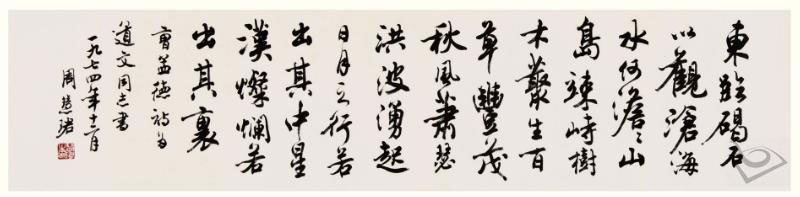 東臨碣石
以觀滄海
水何澹〻山
島竦峙樹
木叢生百
草豐茂
秋風蕭瑟
洪波湧起
日月之行若
出其中星
漢燦爛若
出其裏
曹孟德詩为
道文同志書
一九七四年十二月
周慧珺